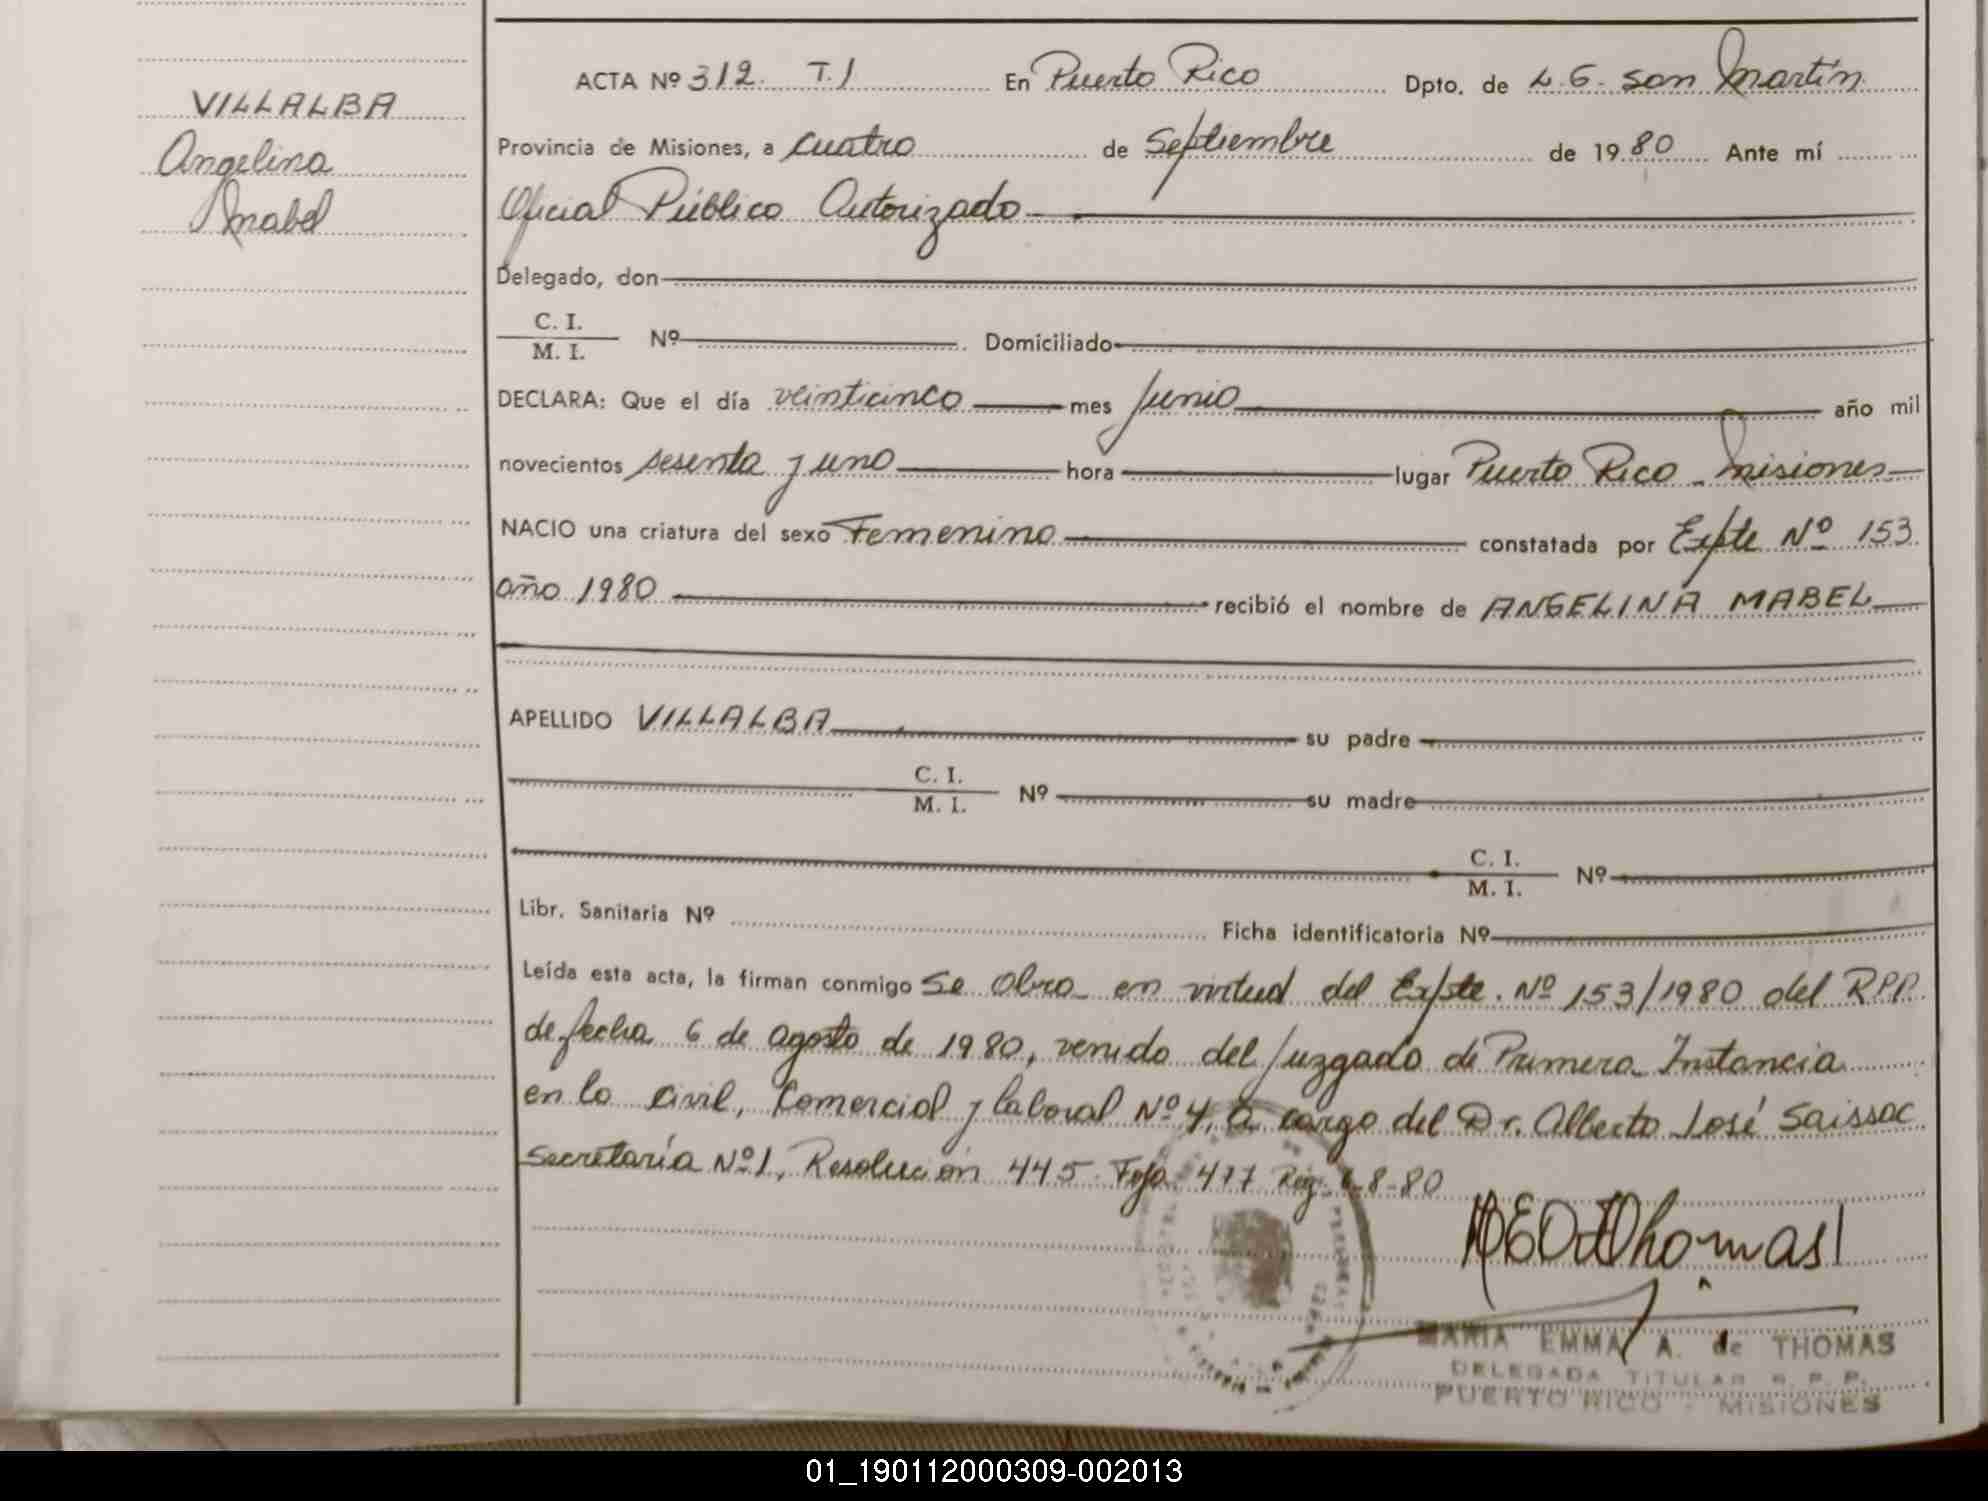 VILLALBA
Angelina
Mabel
ACTA Nº 312. T.1 En Puerto Rico Dpto. de L.G. San Martín
Provincia de Misiones, a cuatro de Septiembre de 1980 Ante mí
Oficial Público Autorizado
Delegado, don
C. I.
M. I. Nº Domiciliado
DECLARA: Que el día veinticinco mes Junio año mil
novecientos sesenta y uno hora lugar Puerto Rico - Misiones
NACIO una criatura del sexo Femenino constatada por Expte Nº 153
año 1980 recibió el nombre de ANGELINA MABEL
APELLIDO VILLALBA su padre
C. I.
M. I. Nº su madre
C. I.
M. I. Nº
Libr. Sanitaria Nº Ficha identificatoria Nº
Leída esta acta, la firman conmigo Se obra en virtud del Expte. Nº 153/1980 del RPP
de fecha 6 de agosto de 1980, venido del Juzgado de Primera Instancia
en lo Civil, Comercial y laboral Nº 4, a cargo del Dr. Alberto José Saissac
Secretaría Nº 1, Resolución 445. Foja 417 Reg. 6-8-80
MARIA EMMA A. de THOMAS
DELEGADA TITULAR R. P. P.
PUERTO RICO - MISIONES
01_190112000309-002013